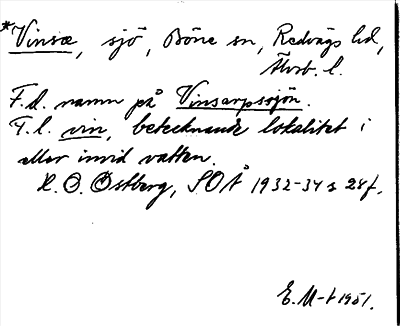 *Vinsæ, sjö, Böne sn, Redvägs hd,
Älvsb. l.
F.d. namn på Vinsarpssjön.
T. l. vin, betecknande lokalitet i
eller invid vatten.
H. O. Östberg, SOÅ 1932-34 s 28f.
E. M-t 1951.